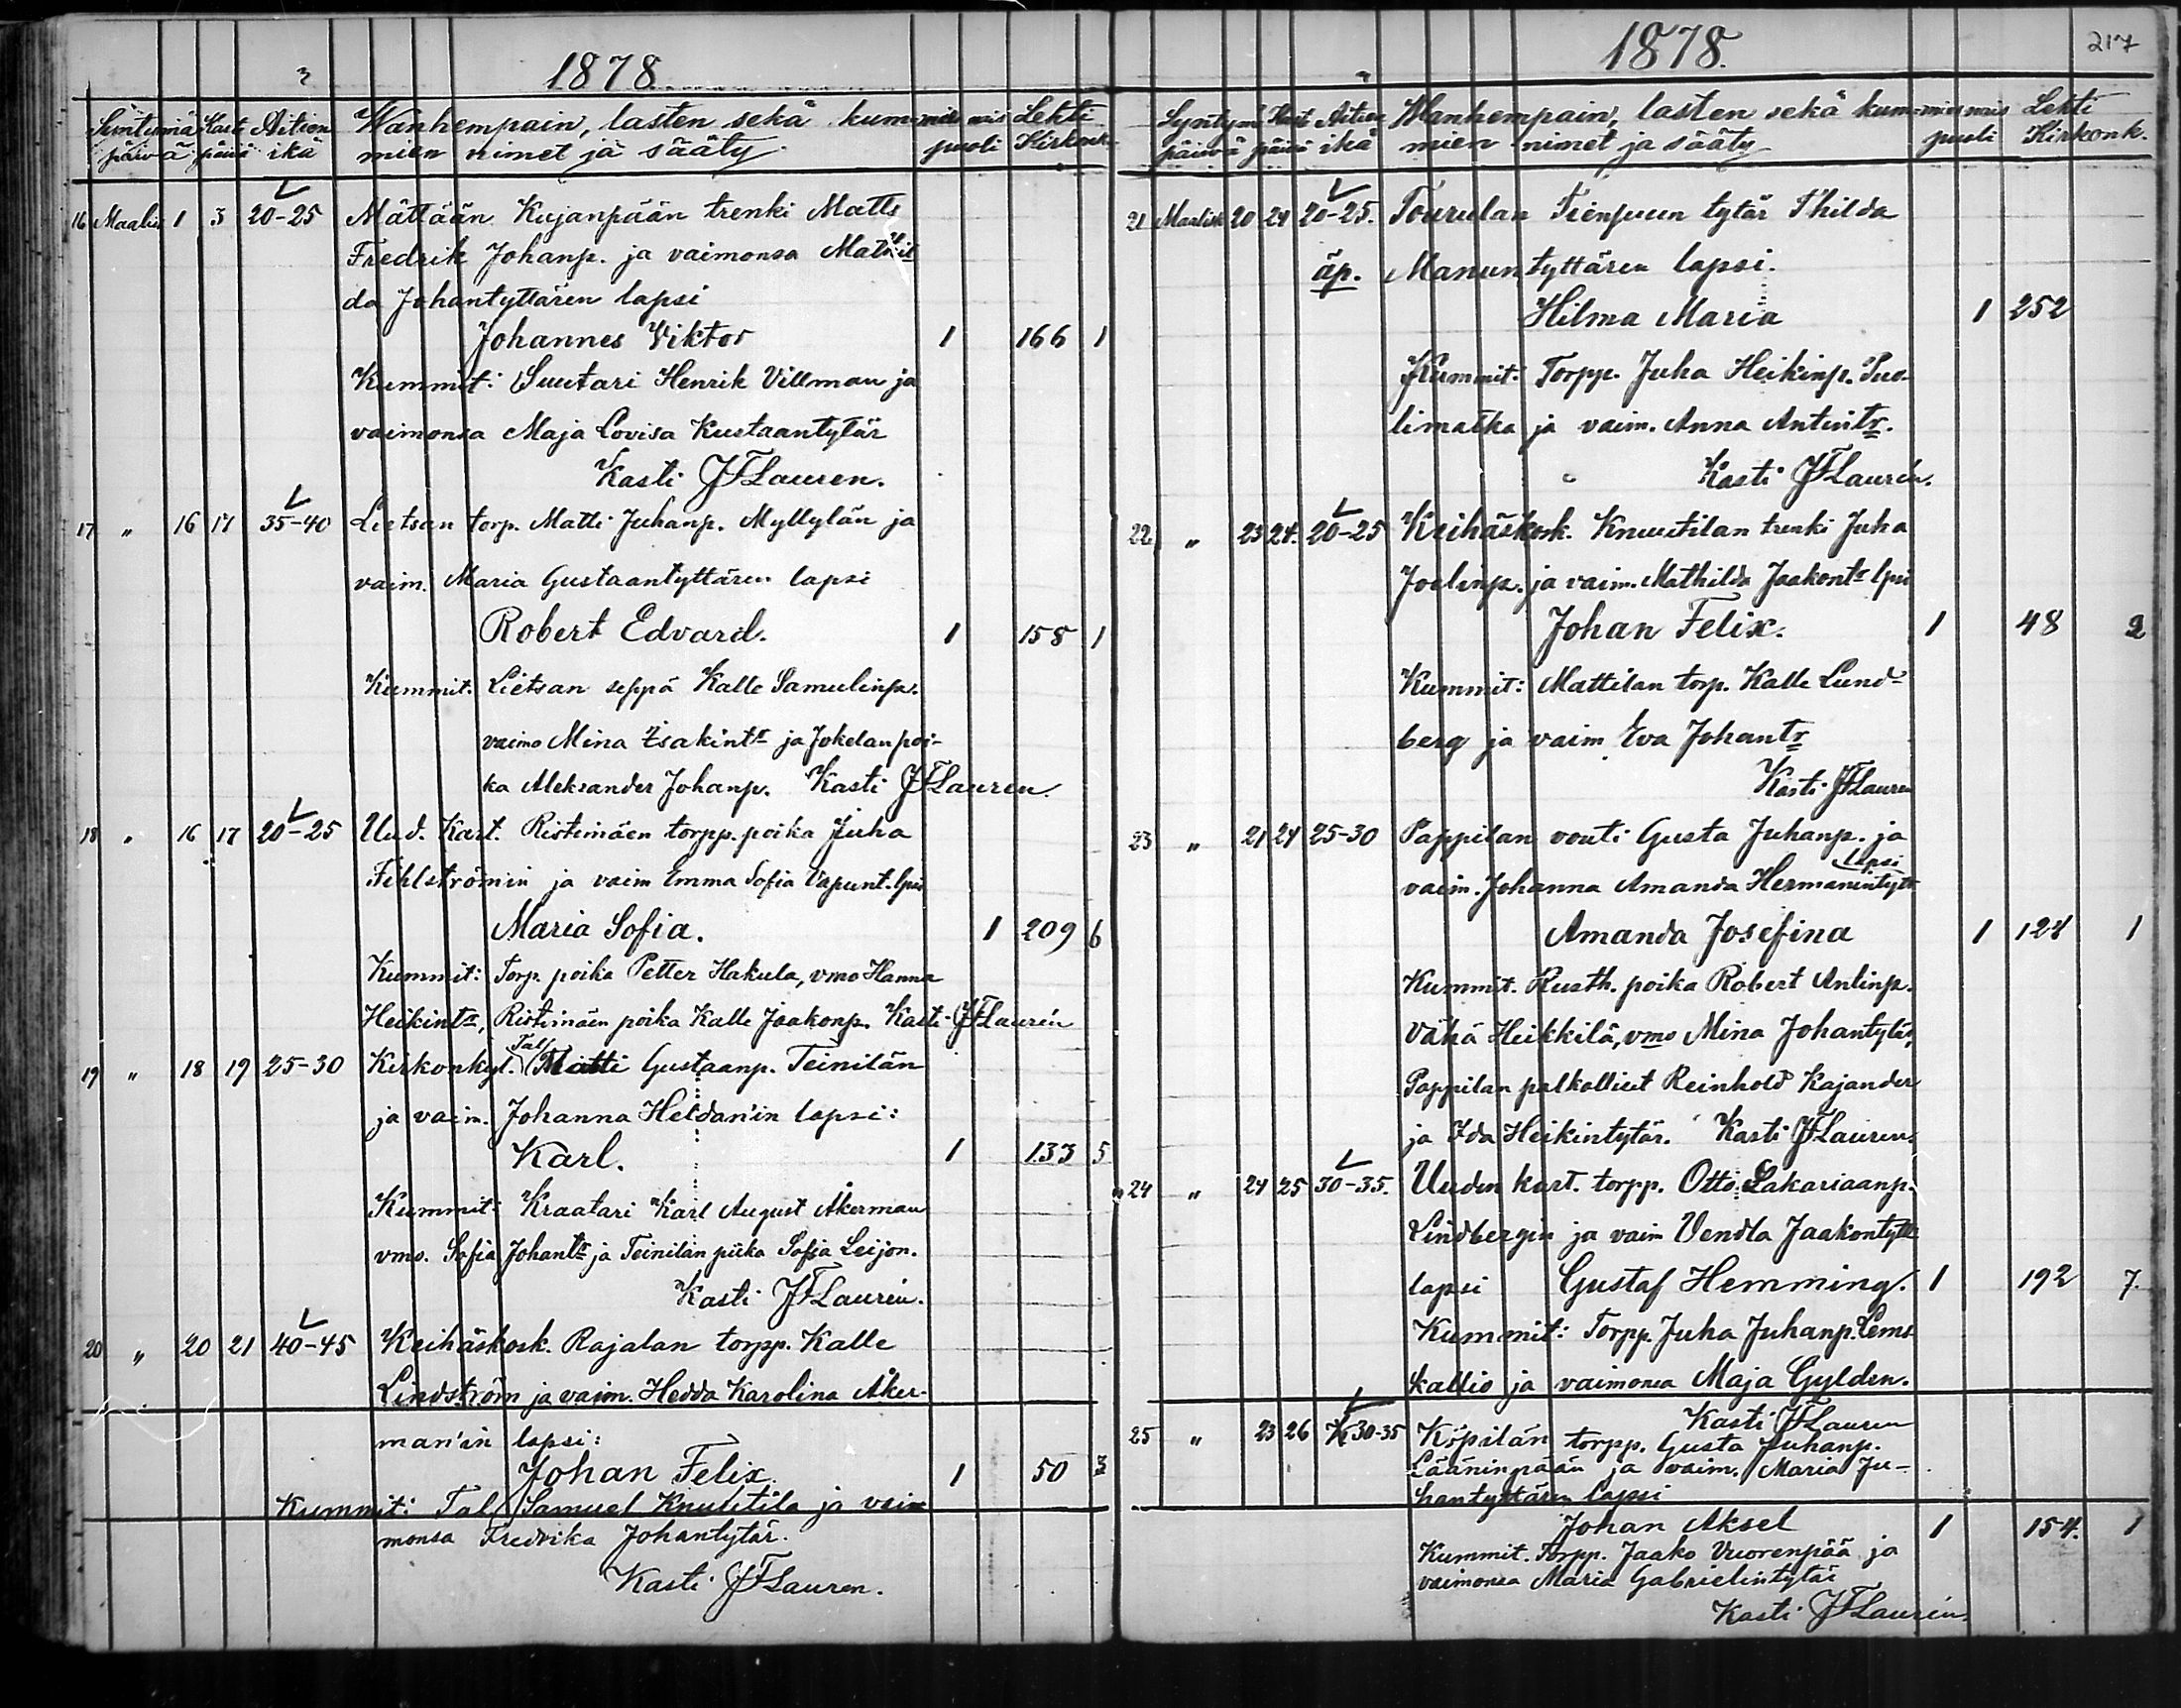 1878
Syntymä päivä Kaste päivä Äitien ikä Wanhempain, lasten sekä kummien nimet ja sääty mies nais puoli Lehti Kirkonk.
16 Maalis 1 3 20-25 Mättään Kujanpään trenki Matts
Fredrik Johanp. ja vaimonsa Mathil
da Johantyttären lapsi
Johannes Viktor 1 166 1
Kummit: Suutari Henrik Villman ja
vaimonsa Maja Lovisa Kustaantytär
Kasti JFLauren.
17 " 16 17 35-40 Lietsan torp. Matti Juhanp. Myllylän ja
vaim. Maria Gustaantyttären lapsi
Robert Edvard. 1 158 1
Kummit. Lietsan seppä Kalle Samulinp.
vaimo Mina Isakintr ja Jokelan poi-
ka Aleksander Johanp. Kasti JFLauren.
18 " 16 17 20-25 Uud. Kart. Ristimäen torpp. poika Juha
Fihlströmin ja vaim Emma Sofia Vapunt. lpsi
Maria Sofia. 1 209 6
Kummit: Torp. poika Petter Hakula, vmo Hanna
Heikintr, Ristimäen poika Kalle Jaakonp. Kasti JFLaurén
19 " 18 19 25-30 Kirkonkyl. Tal/ Matti Gustaanp. Teinilän
ja vaim. Johanna Heldan'in lapsi:
Karl. 1 133 5
Kummit: Kraatari Karl August Åkerman
vmo. Sofia Johantr ja Teinilän piika Sofia Leijon.
Kasti JFLaurén.
20 " 20 21 40-45 Keihäskosk. Rajalan torpp. Kalle
Lindström ja vaim. Hedda Karolina Åker-
man'in lapsi:
Johan Felix. 1 50 3
Kummit: Tal/ Samuel Knuutila ja vai
monsa Fredrika Johantytär.
Kasti JFLauren.
1878. 217
Syntym päivä Kast päivä Äitien ikä Wanhempain, lasten sekä kummien nimet ja sääty mies nais puoli Lehti Kirkonk.
21 Maalisk 20 24 20-25. Tourulan Tienpuun tytär Thilda
äp. Manuntyttären lapsi.
Hilma Maria 1 252
Kummit: Torpp. Juha Heikinp. Puo-
limatka ja vaim. Anna Antintr.
Kasti JFLaurén.
22 " 23 24. 20-25 Keihäskosk. Knuutilan trenki Juha
Joelinp. ja vaim. Mathilda Jaakontr lpsi
Johan Felix. 1 48 2
Kummit: Mattilan torp. Kalle Lund-
berg ja vaim Eva Johantr
Kasti JFLauren
23 " 21 24 25-30 Pappilan vouti Gusta Juhanp. ja
vaim. Johanna Amanda Hermanintytt lapsi
Amanda Josefina 1 124 1
Kummit. Rusth. poika Robert Anlinp.
Vähä Heikkilä, vmo Mina Johantytär,
Pappilan palkolliset Reinhold Kajander
ja Ida Heikintytär. Kasti JFLauren.
24 " 24 25 30-35. Uuden kart. torpp. Otto Sakariaanp.
Lindbergin ja vaim Vendla Jaakontytt
lapsi Gustaf Hemming. 1 192 7.
Kummit: Torpp. Juha Juhanp. Lems
kallio ja vaimonsa Maja Gylden.
Kasti JFLauren
25 " 23 26 30-35 Köpilän torpp. Gusta Juhanp.
Lääninpään ja vaim. Maria Ju-
hantyttären lapsi
Johan Aksel 1 154. 1
Kummit. Torpp. Jaako Vuorenpää ja
vaimonsa Maria Gabrielintytär
Kasti JFLaurén.